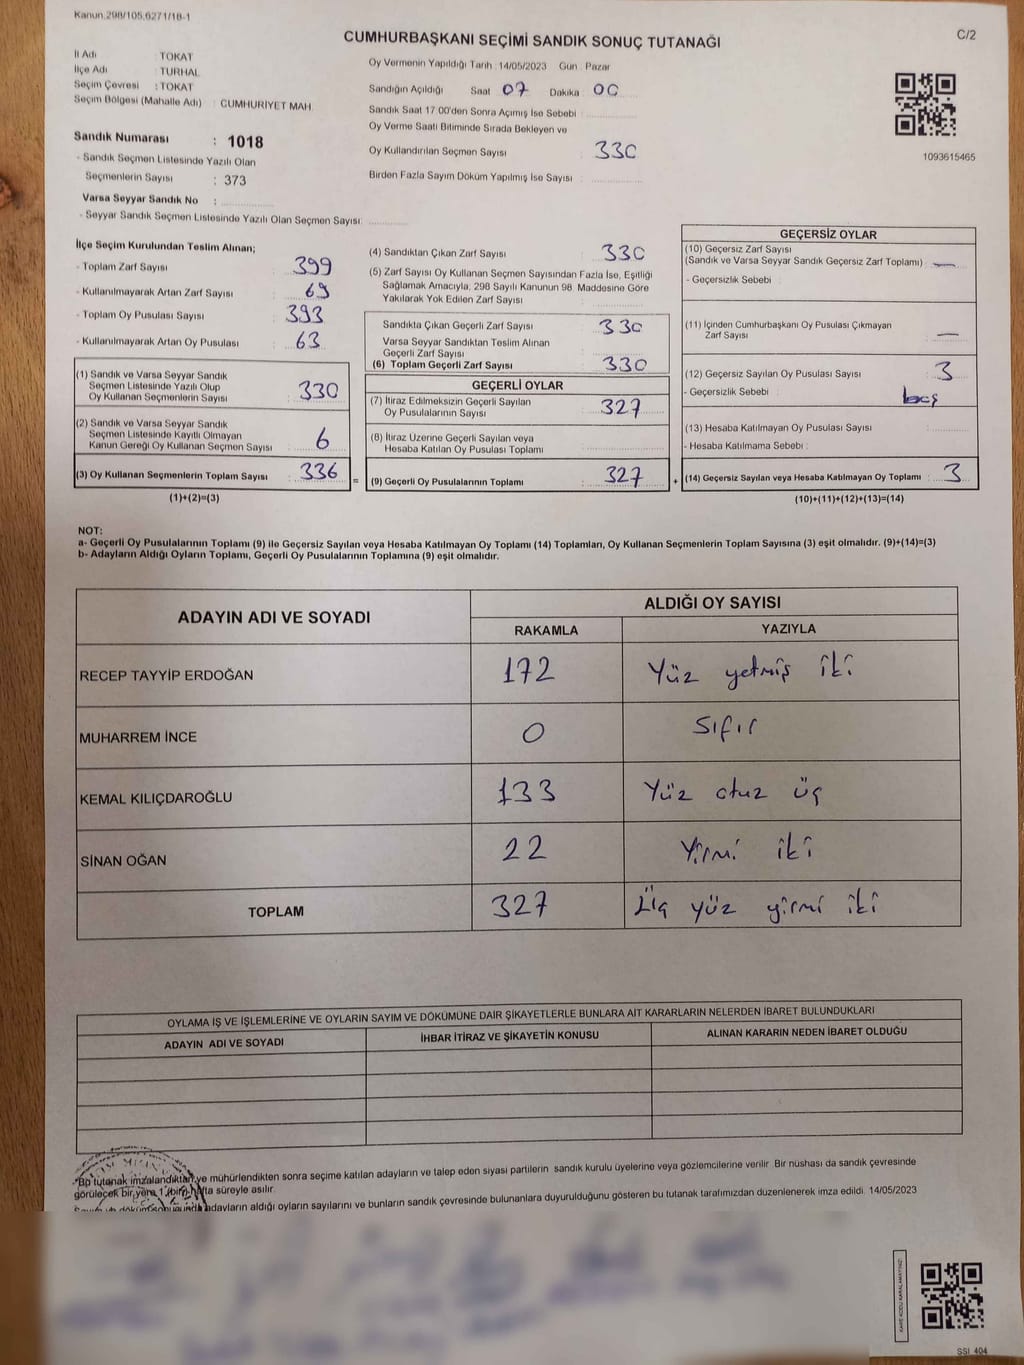 Kanun.298/105,6271/18-1
C/2
CUMHURBAŞKANI SEÇİMİ SANDIK SONUÇ TUTANAĞI
İl Adı : TOKAT
İlçe Adı : TURHAL
Seçim Çevresi : TOKAT
Seçim Bölgesi (Mahalle Adı) : CUMHURİYET MAH.
Sandık Numarası : 1018
- Sandık Seçmen Listesinde Yazılı Olan
Seçmenlerin Sayısı : 373
Varsa Seyyar Sandık No :
- Seyyar Sandık Seçmen Listesinde Yazılı Olan Seçmen Sayısı:
Oy Vermenin Yapıldığı Tarih :14/05/2023 Gün : Pazar
Sandığın Açıldığı Saat 07 Dakika 00
Sandık Saat 17.00'den Sonra Açılmış İse Sebebi
Oy Verme Saati Bitiminde Sırada Bekleyen ve
Oy Kullandırılan Seçmen Sayısı 330
Birden Fazla Sayım Döküm Yapılmış İse Sayısı :
1093615465
İlçe Seçim Kurulundan Teslim Alınan;
- Toplam Zarf Sayısı 399
- Kullanılmayarak Artan Zarf Sayısı 69
- Toplam Oy Pusulası Sayısı 393
- Kullanılmayarak Artan Oy Pusulası 63
(1) Sandık ve Varsa Seyyar Sandık
Seçmen Listesinde Yazılı Olup
Oy Kullanan Seçmenlerin Sayısı : 330
(2) Sandık ve Varsa Seyyar Sandık
Seçmen Listesinde Kayıtlı Olmayan
Kanun Gereği Oy Kullanan Seçmen Sayısı : 6
(3) Oy Kullanan Seçmenlerin Toplam Sayısı : 336
(1)+(2)=(3)
=
(4) Sandıktan Çıkan Zarf Sayısı : 330
(5) Zarf Sayısı Oy Kullanan Seçmen Sayısından Fazla İse, Eşitliği
Sağlamak Amacıyla, 298 Sayılı Kanunun 98. Maddesine Göre
Yakılarak Yok Edilen Zarf Sayısı :
Sandıkta Çıkan Geçerli Zarf Sayısı : 330
Varsa Seyyar Sandıktan Teslim Alınan
Geçerli Zarf Sayısı :
(6) Toplam Geçerli Zarf Sayısı : 330
GEÇERLİ OYLAR
(7) İtiraz Edilmeksizin Geçerli Sayılan
Oy Pusulalarının Sayısı : 327
(8) İtiraz Üzerine Geçerli Sayılan veya
Hesaba Katılan Oy Pusulası Toplamı :
(9) Geçerli Oy Pusulalarının Toplamı : 327
+
GEÇERSİZ OYLAR
(10) Geçersiz Zarf Sayısı
(Sandık ve Varsa Seyyar Sandık Geçersiz Zarf Toplamı) : —
- Geçersizlik Sebebi :
(11) İçinden Cumhurbaşkanı Oy Pusulası Çıkmayan
Zarf Sayısı : —
(12) Geçersiz Sayılan Oy Pusulası Sayısı : 3
- Geçersizlik Sebebi : boş
(13) Hesaba Katılmayan Oy Pusulası Sayısı :
- Hesaba Katılmama Sebebi :
(14) Geçersiz Sayılan veya Hesaba Katılmayan Oy Toplamı : 3
(10)+(11)+(12)+(13)=(14)
NOT:
a- Geçerli Oy Pusulalarının Toplamı (9) ile Geçersiz Sayılan veya Hesaba Katılmayan Oy Toplamı (14) Toplamları, Oy Kullanan Seçmenlerin Toplam Sayısına (3) eşit olmalıdır. (9)+(14)=(3)
b- Adayların Aldığı Oyların Toplamı, Geçerli Oy Pusulalarının Toplamına (9) eşit olmalıdır.
ADAYIN ADI VE SOYADI
ALDIĞI OY SAYISI
RAKAMLA YAZIYLA
RECEP TAYYİP ERDOĞAN 172 Yüz yetmiş iki
MUHARREM İNCE 0 Sıfır
KEMAL KILIÇDAROĞLU 133 Yüz otuz üç
SİNAN OĞAN 22 Yirmi iki
TOPLAM 327 Üç yüz yirmi iki
OYLAMA İŞ VE İŞLEMLERİNE VE OYLARIN SAYIM VE DÖKÜMÜNE DAİR ŞİKAYETLERLE BUNLARA AİT KARARLARIN NELERDEN İBARET BULUNDUKLARI
ADAYIN ADI VE SOYADI İHBAR İTİRAZ VE ŞİKAYETİN KONUSU ALINAN KARARIN NEDEN İBARET OLDUĞU
*Bu tutanak imzalandıktan ve mühürlendikten sonra seçime katılan adayların ve talep eden siyasi partilerin sandık kurulu üyelerine veya gözlemcilerine verilir. Bir nüshası da sandık çevresinde
görülecek bir yere 1 (bir) hafta süreyle asılır.
adayların aldığı oyların sayılarını ve bunların sandık çevresinde bulunanlara duyurulduğunu gösteren bu tutanak tarafımızdan düzenlenerek imza edildi. 14/05/2023
KARE KODU KARALAMAYINIZ!
SSI_404